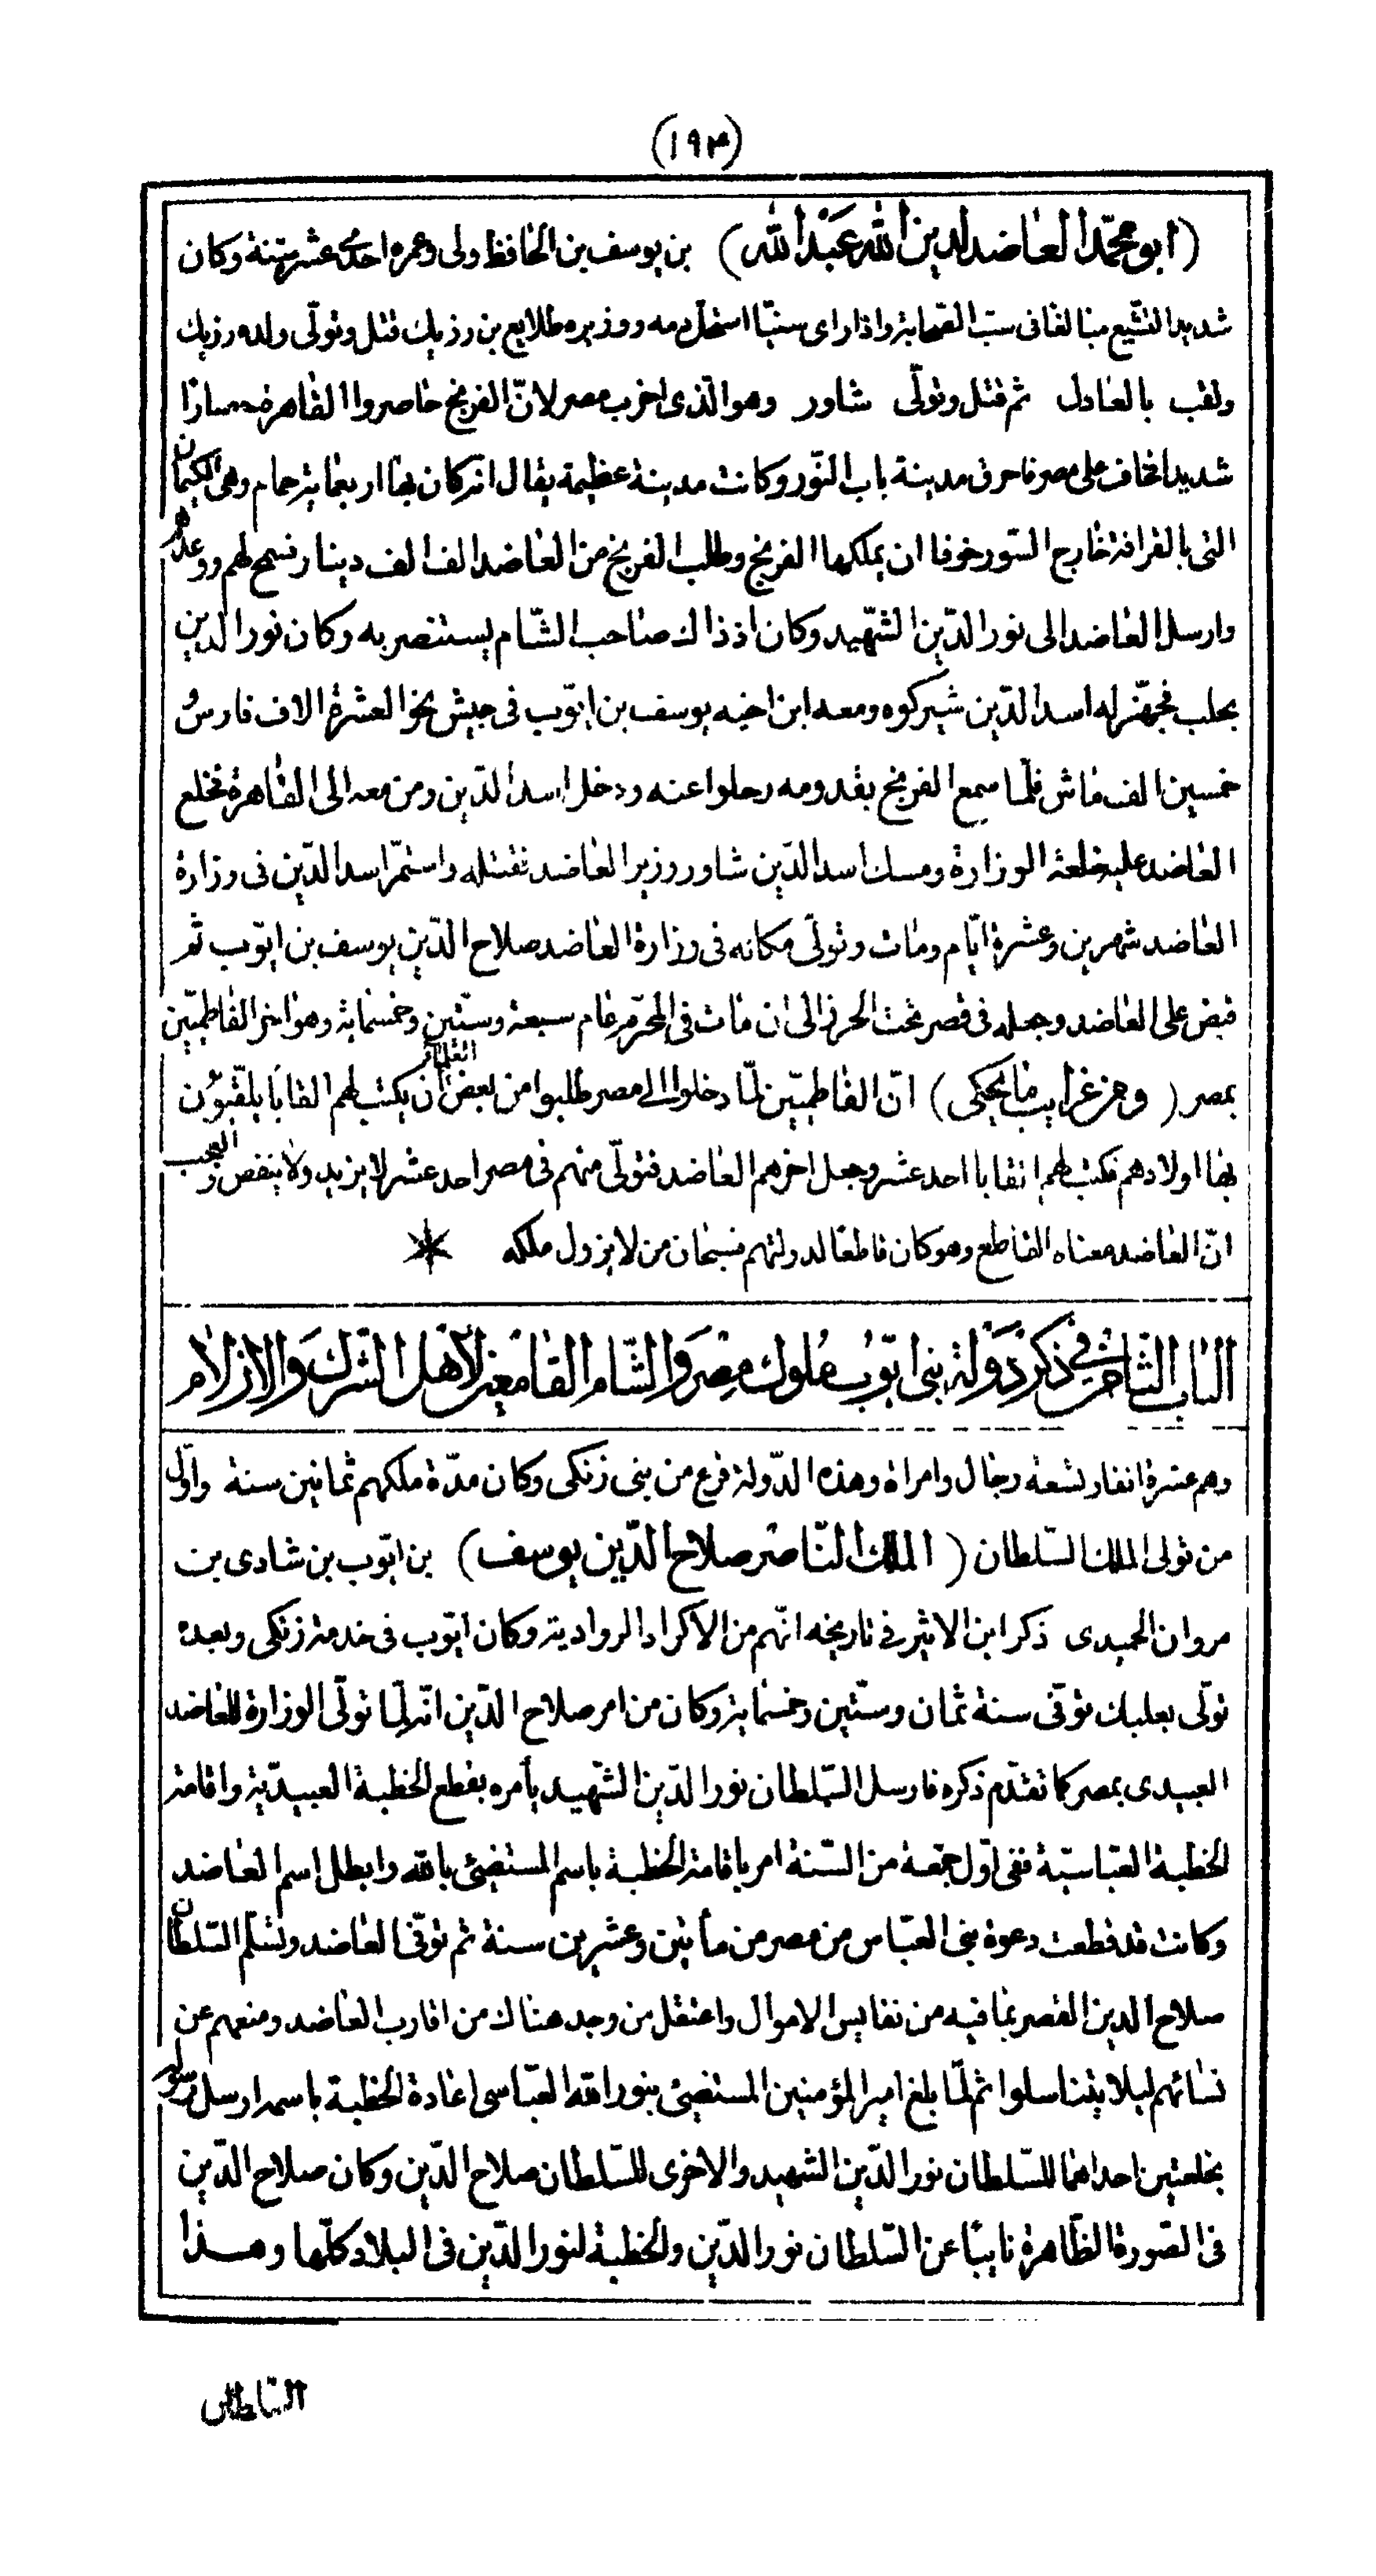 (١٩٣)
(ابو محمّد العاضد لدين الله عبد الله) بن يوسف بن الحافظ ولى وعمره احدى عشر سنة وكان
شديد التشيع مبالغا فى سبّ الصحابة واذا راى سنيّا استحلّ دمه ووزيره طلايع بن رزيك قتل وتولّى ولده رزيك
ولقب بالعادل ثم قتل وتولّى شاور وهو الّذى اخرب مصر لانّ الفرنج حاصروا القاهرة حصارًا
شديدا فخاف على مصر فاحرق مدينة باب النّور وكانت مدينة عظيمة يقال انه كان بها اربعماية حمام وهى الكيمان
التى بالقرافة خارج السور خوفا ان يملكها الفرنج وطلب الفرنج من العاضد الف الف دينار فسمح لهم ووعدهم
وارسل العاضد الى نور الدّين الشهّيد وكان اذ ذاك صاحب الشّام يستنصر به وكان نور الدين
بحلب فجهّز له اسد الدّين شيركوه ومعه ابن اخيه يوسف بن ايّوب فى جيش نحو العشرة الاف فارس
خمسين الف ماش فلمّا سمع الفرنج بقدومه رحلوا عنه ودخل اسد الدّين ومن معه الى القاهرة فخلع
العاضد عليه خلعة الوزارة ومسك اسد الدّين شاور وزير العاضد فقتله واستمّر اسد الدّين فى وزارة
العاضد شهرين وعشرة ايّام ومات وتولّى مكانه فى وزارة العاضد صلاح الدّين يوسف بن ايّوب ثم
قبض على العاضد وجعله فى قصر تحت الحرز الى ان مات فى المحرّم عام سبعة وستّين وخمسماية وهو اخر الفاطميّين
بمصر (ومن غرايب ما يحكى) انّ الفاطميّين لمّا دخلوا الى مصر طلبوا من بعض العلماء أن يكتب لهم القابا يلقّبون
بها اولادهم فكتب لهم القابا احد عشر وجعل اخرهم العاضد فتولّى منهم فى مصر احد عشر لا يزيد ولا ينقص والعجب
انّ العاضد معناه القاطع وهو كان قاطعا لدولتهم فسبحان من لا يزول ملكه
الباب الثامن فى ذكر دولة بنى ايّوب ملوك مصر والشّام القامعين لاهل الشرك والازلام
وهم عشرة انفار تسعة رجال وامراة وهذه الدّولة فرع من بنى زنكى وكان مدّة ملكهم ثمانين سنة واوّل
من تولى الملك السّلطان (الملك النّاصر صلاح الدّين يوسف) بن ايّوب بن شادى بن
مروان الحميدى ذكر ابن الاثير فى تاريخه انّهم من الاكراد الروادية وكان ايّوب فى خدمة زنكى وبعده
تولّى بعلبك توفّى سنة ثمان وستّين وخمسماية وكان من امر صلاح الدّين انّه لمّا تولّى الوزارة للعاضد
العبيدى بمصر كما تقدّم ذكره فارسل السّلطان نور الدّين الشّهيد يأمره بقطع الخطبة العبيديّة واقامة
الخطبة العبّاسيّة ففى اوّل جمعة من السّنة امر باقامة الخطبة باسم المستضيئ بالله وابطل اسم العاضد
وكانت قد قطعت دعوة بنى العبّاس من مصر من مأتين وعشرين سنة ثم توفّى العاضد وتسلّم السّلطان
صلاح الدين القصر بما فيه من نفايس الاموال واعتقل من وجد هناك من اقارب العاضد ومنعهم عن
نسائهم ليلا يتناسلوا ثم لمّا بلغ امير المؤمنين المستضيئ بنور الله العبّاسى اعادة الخطبة باسمه ارسل رسوله
بخلعتين احداهما للسّلطان نور الدّين الشهيد والاخرى للسّلطان صلاح الدّين وكان صلاح الدّين
فى الصّورة الظّاهرة نايبًا عن السّلطان نور الدّين والخطبة لنور الدّين فى البلاد كلّها وهذا
السّلطان